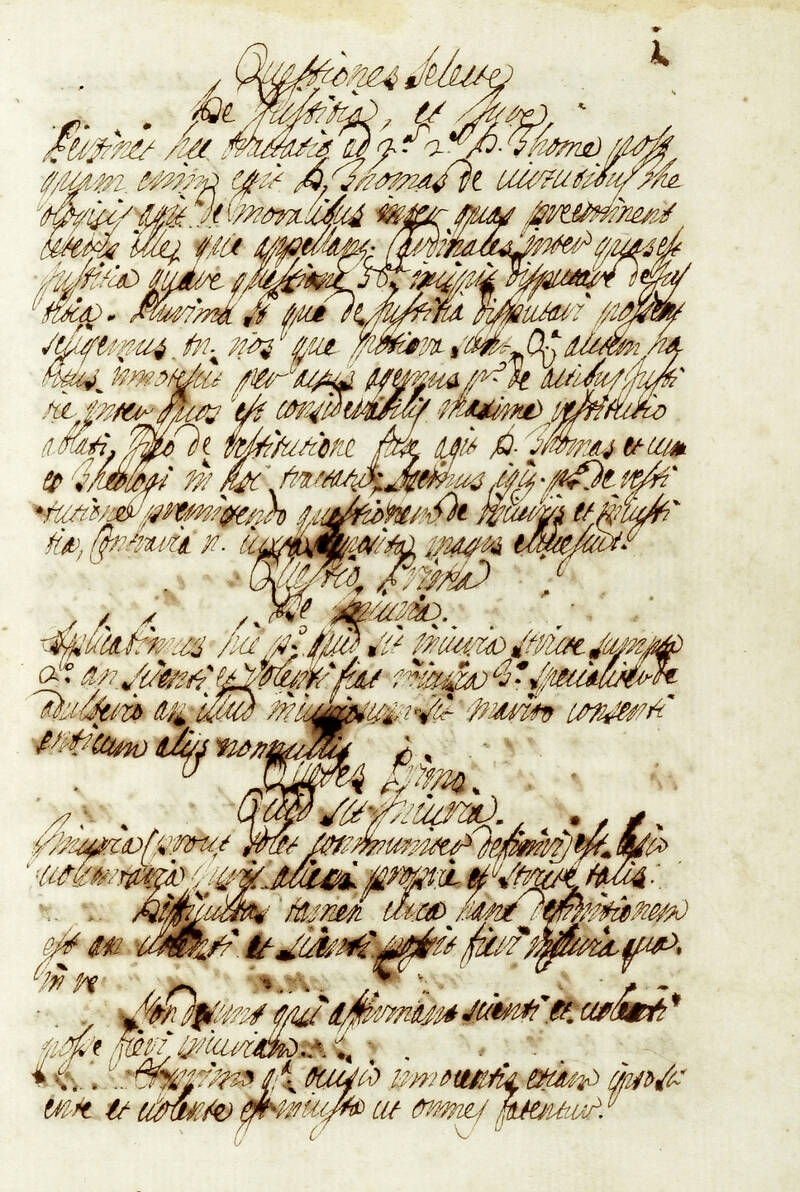 1
Questiones Selecte
De Justitia, et Jure
Pertinet hec tractatio ad 2.ª 2.ª D. Thome post
quam enim egit D. Thomas de virtutibus The
ologicis agit de moralibus inter quas preeminent
ceteris ille, que appellant. Cardinales inter quas est
Justitia quare questione 58ª incipit disputare de Jus
titia. Plurima st que de Justitia disputari possent
seligemus tn. nos que potiora sunt Qª autem ha
bitus innotescit per actus agemus pº de actibus Justi
tie inter quos est considerabilis maxime restitutio
ablati, Ideo de restitutione fuse agit D. Thomas et cum
eo Theologi in hoc tractatu; Agemus igit. pº de resti
tutione premitendo questionem de iniuriis et iniusti
tia, Contraria n. iuxta posita magis elucescunt.
Questio Prima
De Iniuria.
Explicabimus hic pº quid sit iniuria stricte sumpta
2º an scienti et volenti fiat iniuria 3º specialiter de
adulterio an illud iniuriosum sit marito consenti
enti cum aliis nonnullis
Queres Primo
Quid sit Iniuria.
Iniuria (prout solet communiter definiri) est lesio
voluntaria Juris alieni proprie et stricte talis.
Difficultas tamen circa hanc definitionem
est an volenti et scienti possit fieri iniuria qua.
in re
Non desunt qui affirmant scienti et volenti
posse fieri iniuriam.
Et primo qª occisio innocentis etiam ipso sci
ente et volente est iniusta ut omnes fatentur.